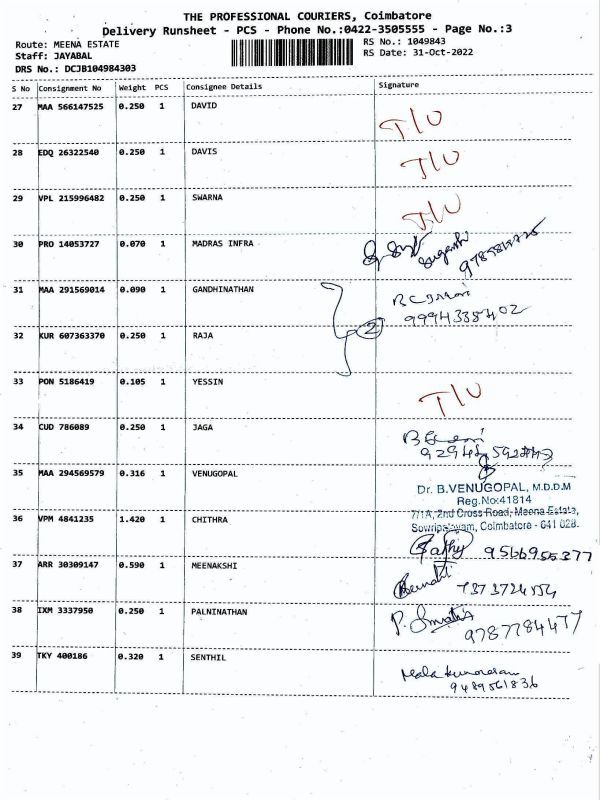 THE PROFESSIONAL COURIERS, Coimbatore
Delivery Runsheet - PCS - Phone No.:0422-3505555 - Page No.:3
Route: MEENA ESTATE
RS No.: 1049843
Staff: JAYABAL
RS Date: 31-Oct-2022
DRS No.: DCJB104984303
S No Consignment No Weight PCS Consignee Details Signature
27 MAA 566147525 0.250 1 DAVID T/U
28 EDQ 26322540 0.250 1 DAVIS T/U
29 VPL 215996482 0.250 1 SWARNA T/U
30 PRO 14053727 0.070 1 MADRAS INFRA
31 MAA 291569014 0.090 1 GANDHINATHAN
2
32 KUR 607363370 0.250 1 RAJA
33 PON 5186419 0.105 1 YESSIN T/U
34 CUD 786089 0.250 1 JAGA
35 MAA 294569579 0.316 1 VENUGOPAL
Dr. B.VENUGOPAL, M.D.D.M
Reg.No:41814
7/1A, 2nd Cross Road, Meena Estate,
Sowripalayam, Coimbatore - 641 028.
36 VPM 4841235 1.420 1 CHITHRA
9566955377
37 ARR 30309147 0.590 1 MEENAKSHI
38 IXM 3337950 0.250 1 PALNINATHAN
9787784477
39 TKY 400186 0.320 1 SENTHIL
9489561836